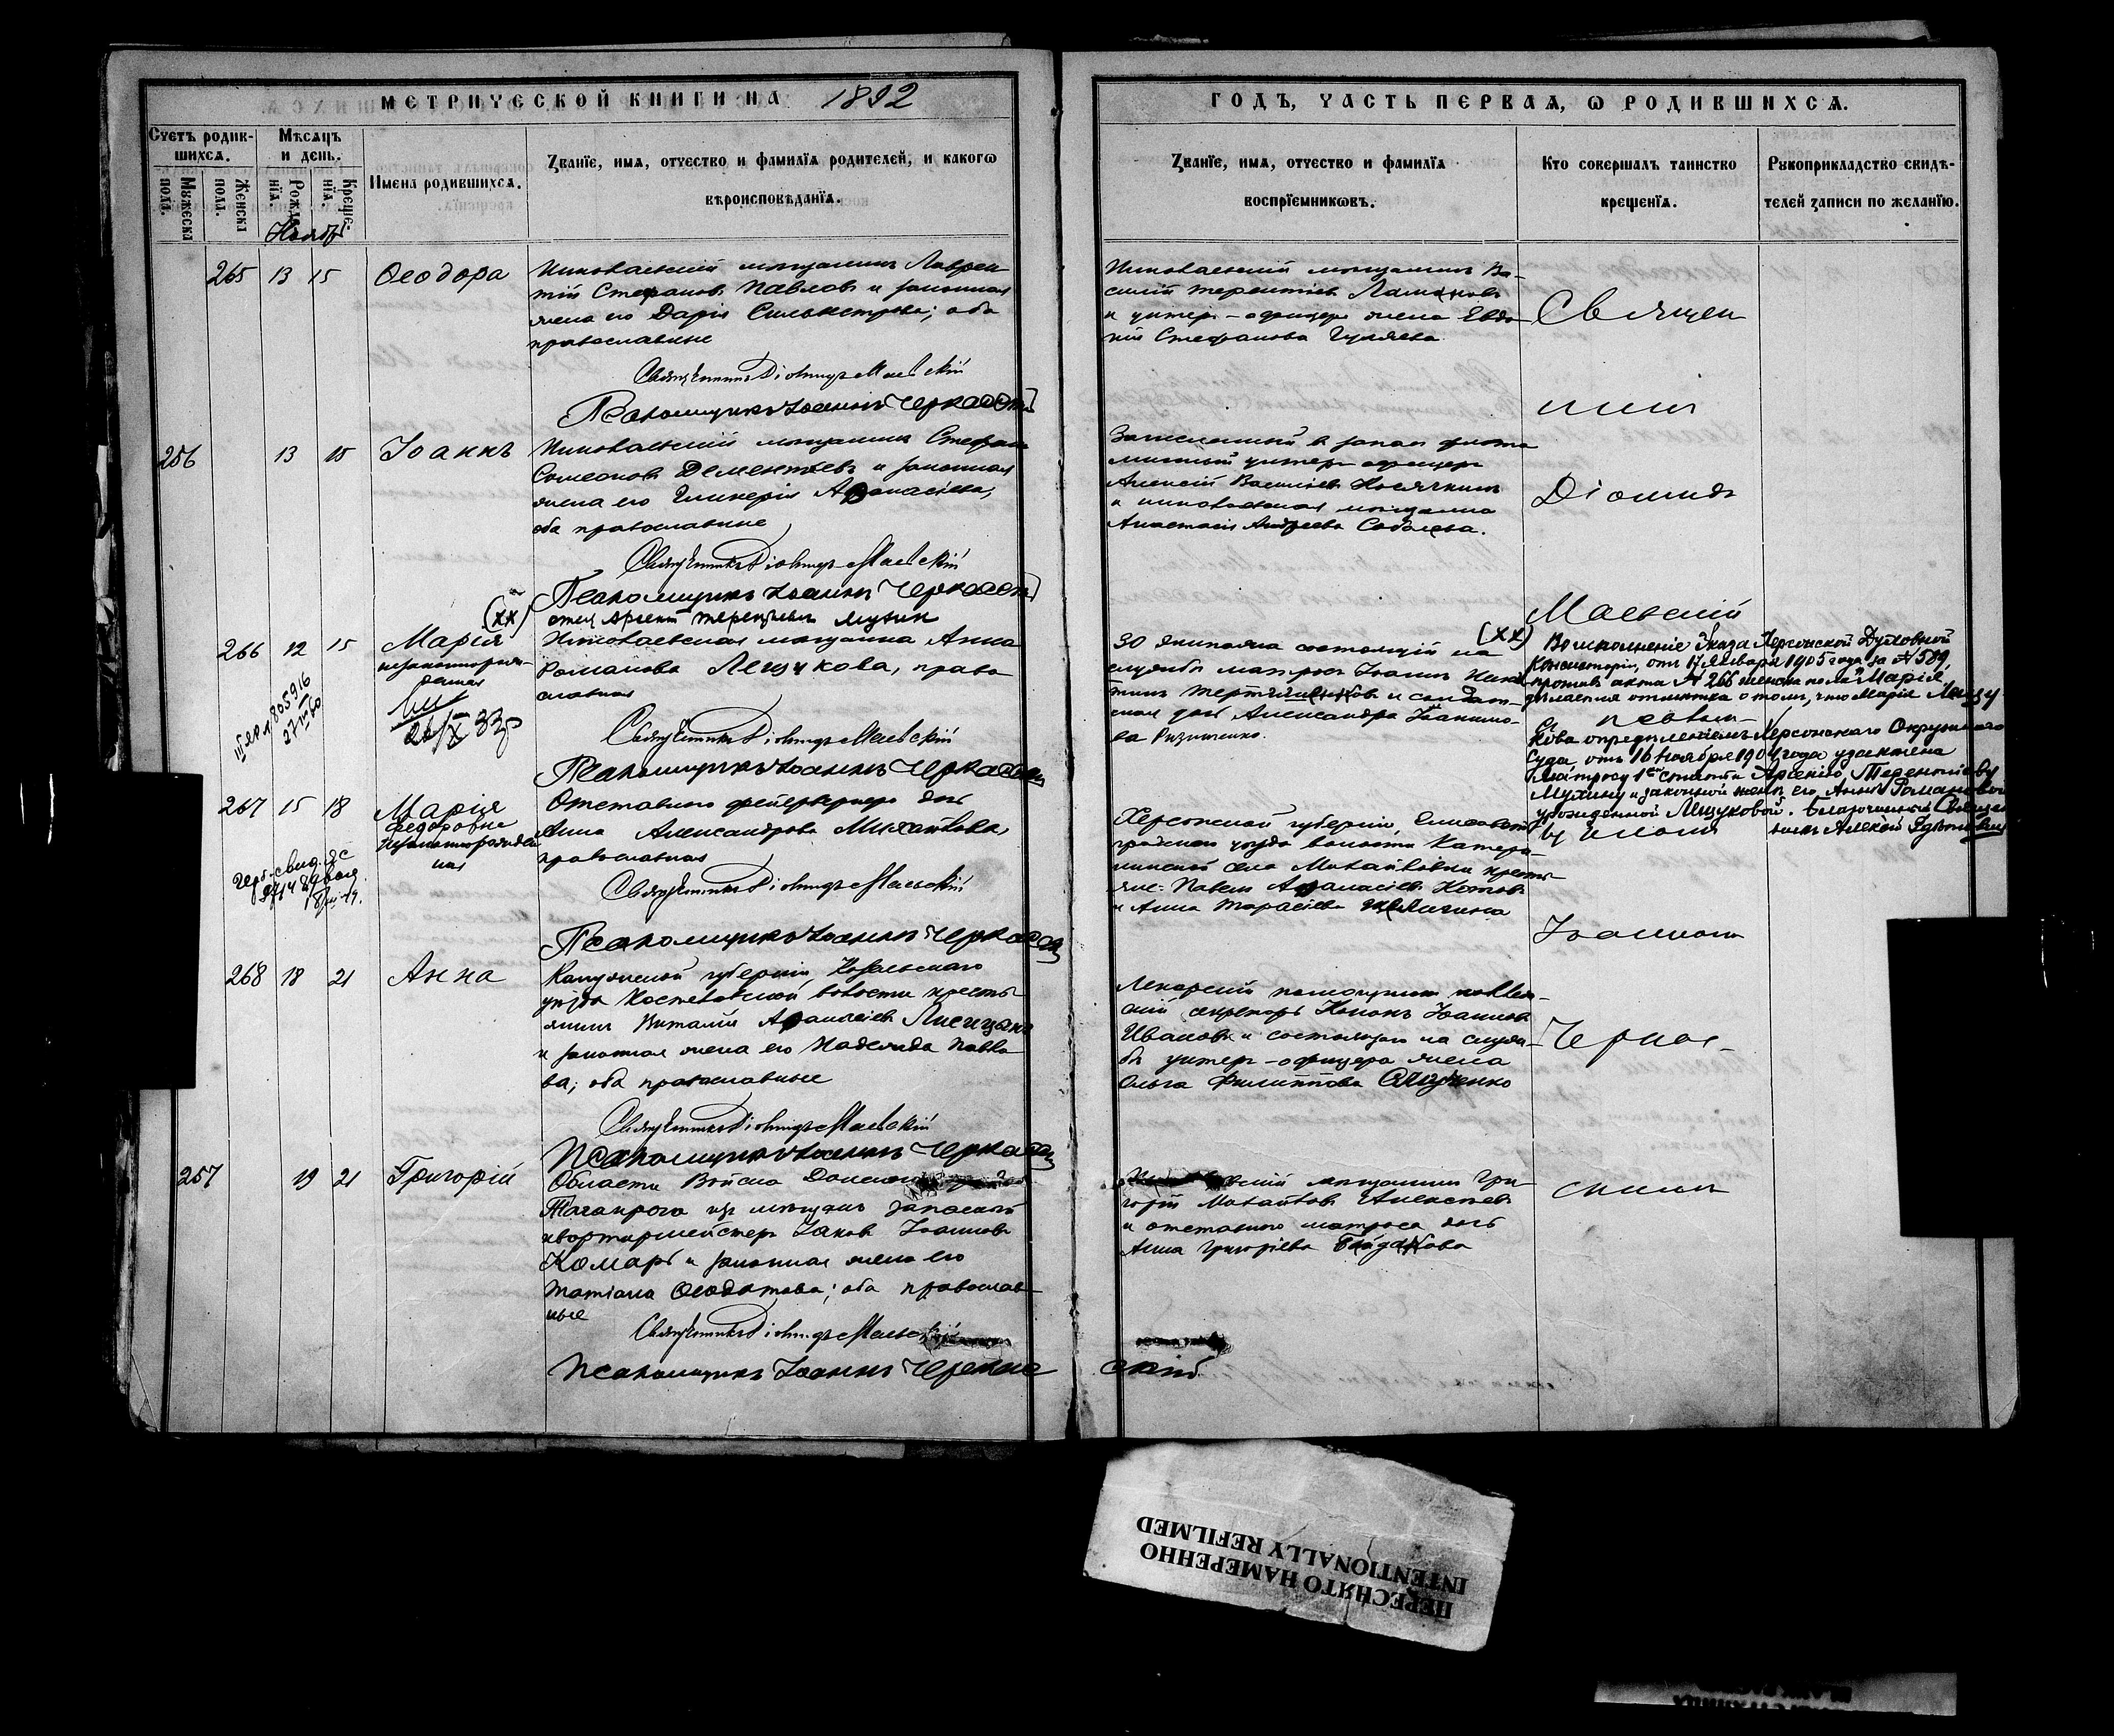 МЕТРИЧЕСКОЙ КНИГИ НА 1892
ГОДЪ, ЧАСТЬ ПЕРВАЯ, Ѡ РОДИВШИХСЯ.
Счетъ родив-
шихся.
Мужеска
пола.
Женска
пола.
Мѣсяцъ
и день.
Рожде-
нїя.
Креще-
нїя.
Имена родившихся.
Званїе, имя, отчество и фамилїя родителей, и какогѡ
вѣроисповѣданїя.
Званїе, имя, отчество и фамилїя
воспрїемникѡвъ.
Кто совершалъ таинство
крещенїя.
Рукоприкладство свидѣ-
телей записи по желанїю.
Ноябрь
265 13 15 Ѳеодора
Николаевскій мѣщанинъ Лаврен-
тій Стефановъ Павловъ и законная
жена его Дарія Сильвестрова; оба
православные
Священникъ Діомидъ Маевскій
Псаломщикъ Іоаннъ Черкасскій
Николаевскій мѣщанинъ Ва-
силій Терентіевъ
и унтеръ-офицера жена Евдо-
кія Стефанова Гуляева
Священ
никъ
256 13 15 Іоаннъ
Николаевскій мѣщанинъ Стефанъ
Симеоновъ Дементьевъ и законная
жена его Гликерія Аѳанасіева,
оба православные
Священникъ Діомидъ Маевскій
Псаломщикъ Іоаннъ Черкасскій
Зачисленный в запасъ флота
минный унтеръ-офицеръ
Алексій Васильевъ
и николаевская мѣщанка
Анастасія Андреева Соболева.
Діомидъ
Маевскій
(хх)
отец Арсений Терентьевич Мухин
266 12 15 Марія
незаконнорож-
денная
26/X 33
III ЯР № 805916
27 III 60
Николаевская мѣщанка Анна
Романова Лещукова, право
славная
Священникъ Діомидъ Маевскій
Псаломщикъ Іоаннъ Черкасскій
(хх)
30 экипажа состоящій на
службѣ матросъ Іоаннъ
и солдат-
ская дочь Александра Іоанно-
ва
Во исполненіе Указа Херсонской Духовной
Консисторіи, отъ 17 Января 1905 года за № 589,
противъ акта № 266 женска пола "Марія"
дѣлается отмѣтка о томъ, что Марія Лещу-
кова опредѣленіемъ Херсонскаго Окружнаго
Суда, отъ 16 Ноября 1904 года удочтена
матросу 1ой статьи Арсенію Терентіеву
Мухину и законной женѣ его Аннѣ Романовой
урожденной Лещуковой. Благочинный Священ
никъ Алексій
267 15 18 Марія
Федоровна
незаконнорожден
ная
Отставного фейерверкера дочь
Анна Александрова Михайлова,
православная
Священникъ Діомидъ Маевскій
Псаломщикъ Іоаннъ Черкасскій
Херсонской губерніи, Елисавет-
градскаго уѣзда волости Катери-
нинской села Михайловки кресть-
яне: Павелъ Аѳанасіевъ Котовъ
и Анна Тарасіева
Іоанномъ
268 18 21 Анна
Калужской губерніи,
уѣзда волости кресть-
янинъ Виталій Аѳанасіевъ Лисицынъ
и законная жена его Надежда Павло
ва; оба православные
Священникъ Діомидъ Маевскій
Псаломщикъ Іоаннъ Черкасскій
Лекарскій помощникъ коллеж-
скій секретарь Кононъ Іоанновъ
Ивановъ и состоящаго на служ-
бѣ унтеръ-офицера жена
Ольга Филиппова
Черкас-
257 19 21 Григорій
Области Войска Донскаго
Таганрога изъ мѣщанъ запасный
квартирмейстеръ Іаковъ Іоанновъ
Комаръ и законная жена его
Татіана Ѳеодотова; оба православ-
ные
Священникъ Діомидъ Маевскій
Псаломщикъ Іоаннъ Черкас скій
мѣщанинъ Гри-
горій Михайловъ Алексѣевъ
и отставного матроса дочь
Анна Григоріева
скимъ
ПЕРЕСНЯТО НАМЕРЕННО
INTENTIONALLY REFILMED